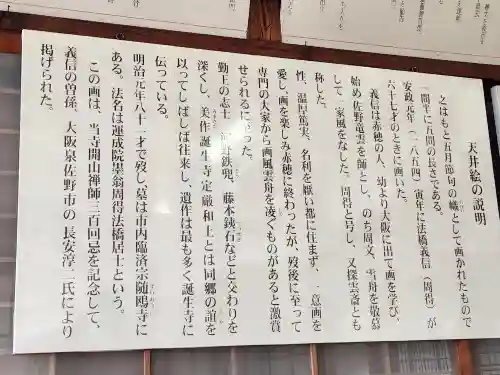 天井絵の説明
之はもと五月節句の幟として画かれたもので
一間半に五間の長さである。
安政元年(一八五四)寅年に法橋義信(周得)が
六十七才のときに画いた。
義信は赤穂の人、幼より大阪に出て画を学び、
始め 佐野元を師とし、のち周文、雪舟を敬慕
して一家風をなした。周得と号し、又探雲斎とも
称した。
性、温厚篤実、名利を厭い都に住まず、一意画を
愛し、画を楽しみ赤穂に終わったが、歿後に至って
専門の大家から画風雲舟を凌ぐものがあると激賞
せられるに至った。
勤王の志士、野鉄兜、藤本鉄石などと交わりを
深くし、美作誕生寺定厳和上とは同郷の誼を
以ってしばしば往来し、遺作は最も多く誕生寺に
伝っている。
明治元年八十一才で歿し、墓は市内臨済宗随鴎寺に
ある。法名は運成院墨翁周得法橋居士という。
この画は、当寺開山禅師三百回忌を記念して、
義信の曽孫、大阪泉佐野市の長安淳二氏により
掲げられた。